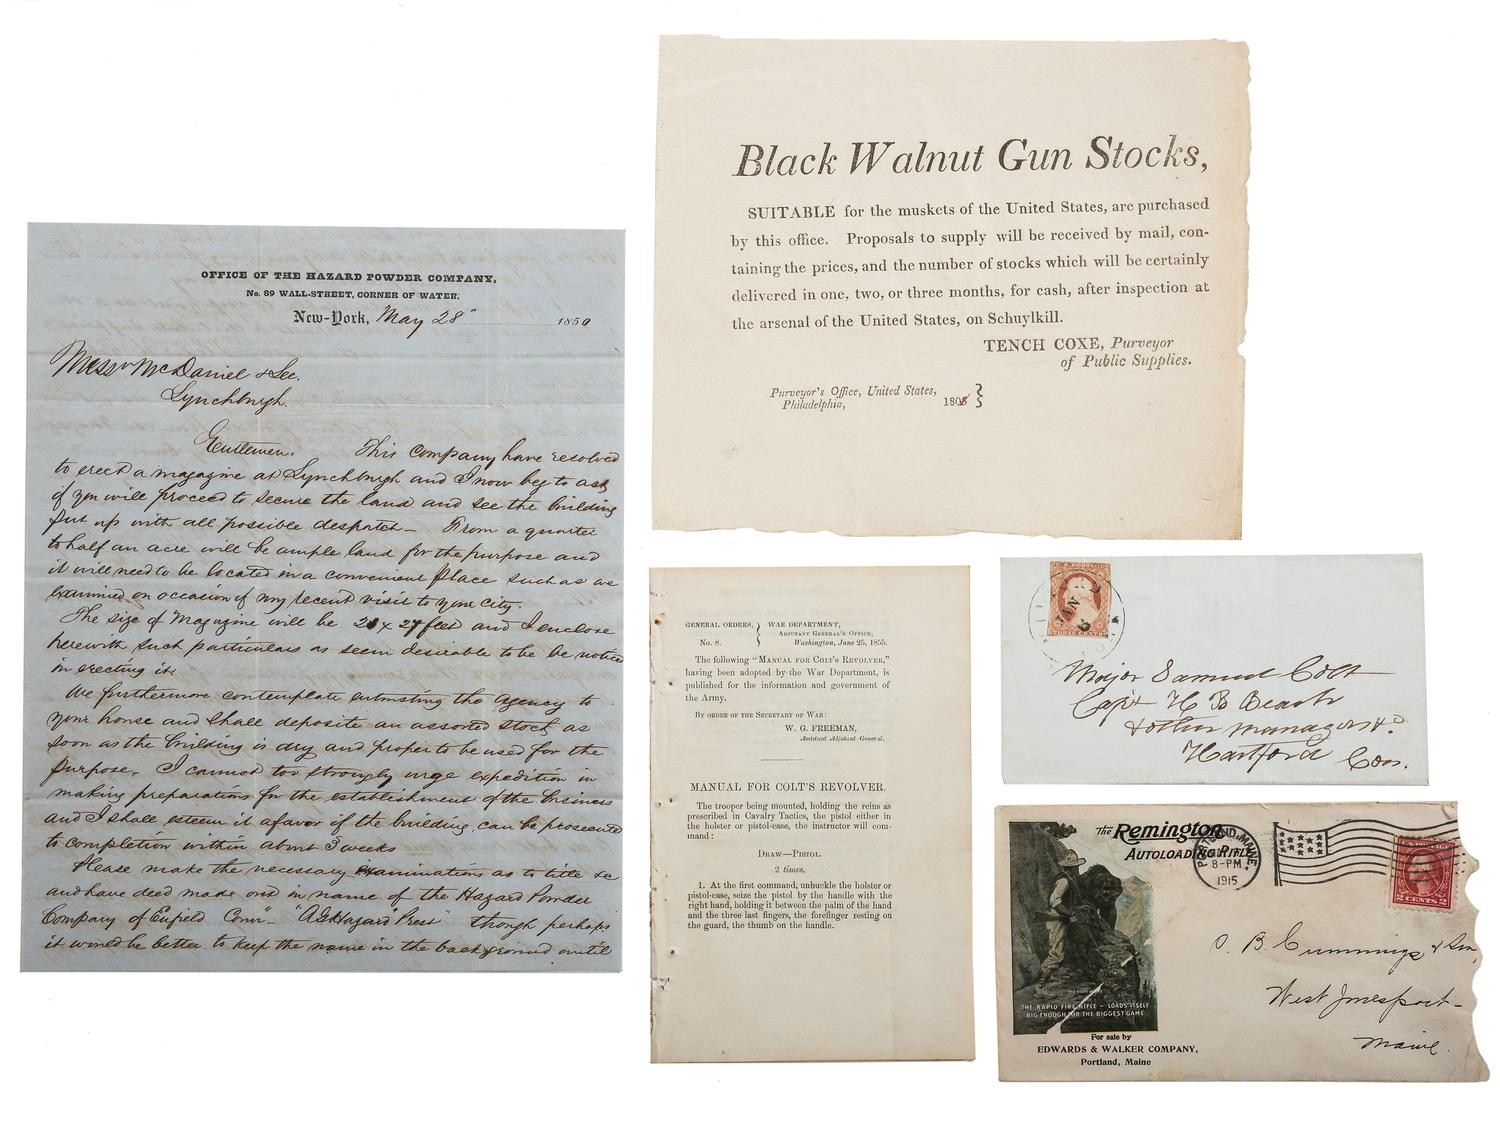 OFFICE OF THE HAZARD POWDER COMPANY,
No. 89 WALL-STREET, CORNER OF WATER.
New-York, May 28" 1850
Messrs McDaniel & Lee.
Lynchburgh.
Gentlemen. This Company have resolved
to erect a magazine at Lynchburgh and I now beg to ask
if you will proceed to secure the land and see the building
put up with all possible despatch— From a quarter
to half an acre will be ample land for the purpose and
it will need to be located in a convenient place such as we
examined on occasion of my recent visit to your city.
The size of Magazine will be 21 x 27 feet and I enclose
herewith such particulars as seem desirable to be noticed
in erecting it.
We furthermore contemplate entrusting the agency to
your house and shall deposite an assorted stock as
soon as the building is dry and proper to be used for the
purpose. I cannot too strongly urge expedition in
making preparations for the establishment of the business
and I shall esteem it a favor if the building can be prosecuted
to completion within about 3 weeks
Please make the necessary examinations as to title &c
and have deed made out in name of the Hazard Powder
Company of Enfield Conn— "A G Hazard Prest" though perhaps
it would be better to keep the name in the back ground until
Black Walnut Gun Stocks,
SUITABLE for the muskets of the United States, are purchased
by this office. Proposals to supply will be received by mail, con-
taining the prices, and the number of stocks which will be certainly
delivered in one, two, or three months, for cash, after inspection at
the arsenal of the United States, on Schuylkill.
TENCH COXE, Purveyor
of Public Supplies.
Purveyor's Office, United States,
Philadelphia, 180
GENERAL ORDERS,
No. 8.
WAR DEPARTMENT,
ADJUTANT GENERAL'S OFFICE,
Washington, June 25, 1855.
The following "MANUAL FOR COLT'S REVOLVER,"
having been adopted by the War Department, is
published for the information and government of
the Army.
BY ORDER OF THE SECRETARY OF WAR:
W. G. FREEMAN,
Assistant Adjutant General.
MANUAL FOR COLT'S REVOLVER.
The trooper being mounted, holding the reins as
prescribed in Cavalry Tactics, the pistol either in
the holster or pistol-case, the instructor will com-
mand:
DRAW—PISTOL.
2 times.
1. At the first command, unbuckle the holster or
pistol-case, seize the pistol by the handle with the
right hand, holding it between the palm of the hand
and the three last fingers, the forefinger resting on
the guard, the thumb on the handle.
U.S. POSTAGE
JAN
THREE CENTS
Major Samuel Colt
Capt H B Beach
& other managers &c
Hartford Con.
The Remington
AUTOLOADING RIFLE
PORTLAND, MAINE
8-PM
1915
U.S. POSTAGE
2 CENTS 2
O. B. Cummings & Son,
West Jonesport—
Maine.
THE RAPID FIRE RIFLE — LOADS ITSELF
BIG ENOUGH FOR THE BIGGEST GAME
For sale by
EDWARDS & WALKER COMPANY,
Portland, Maine